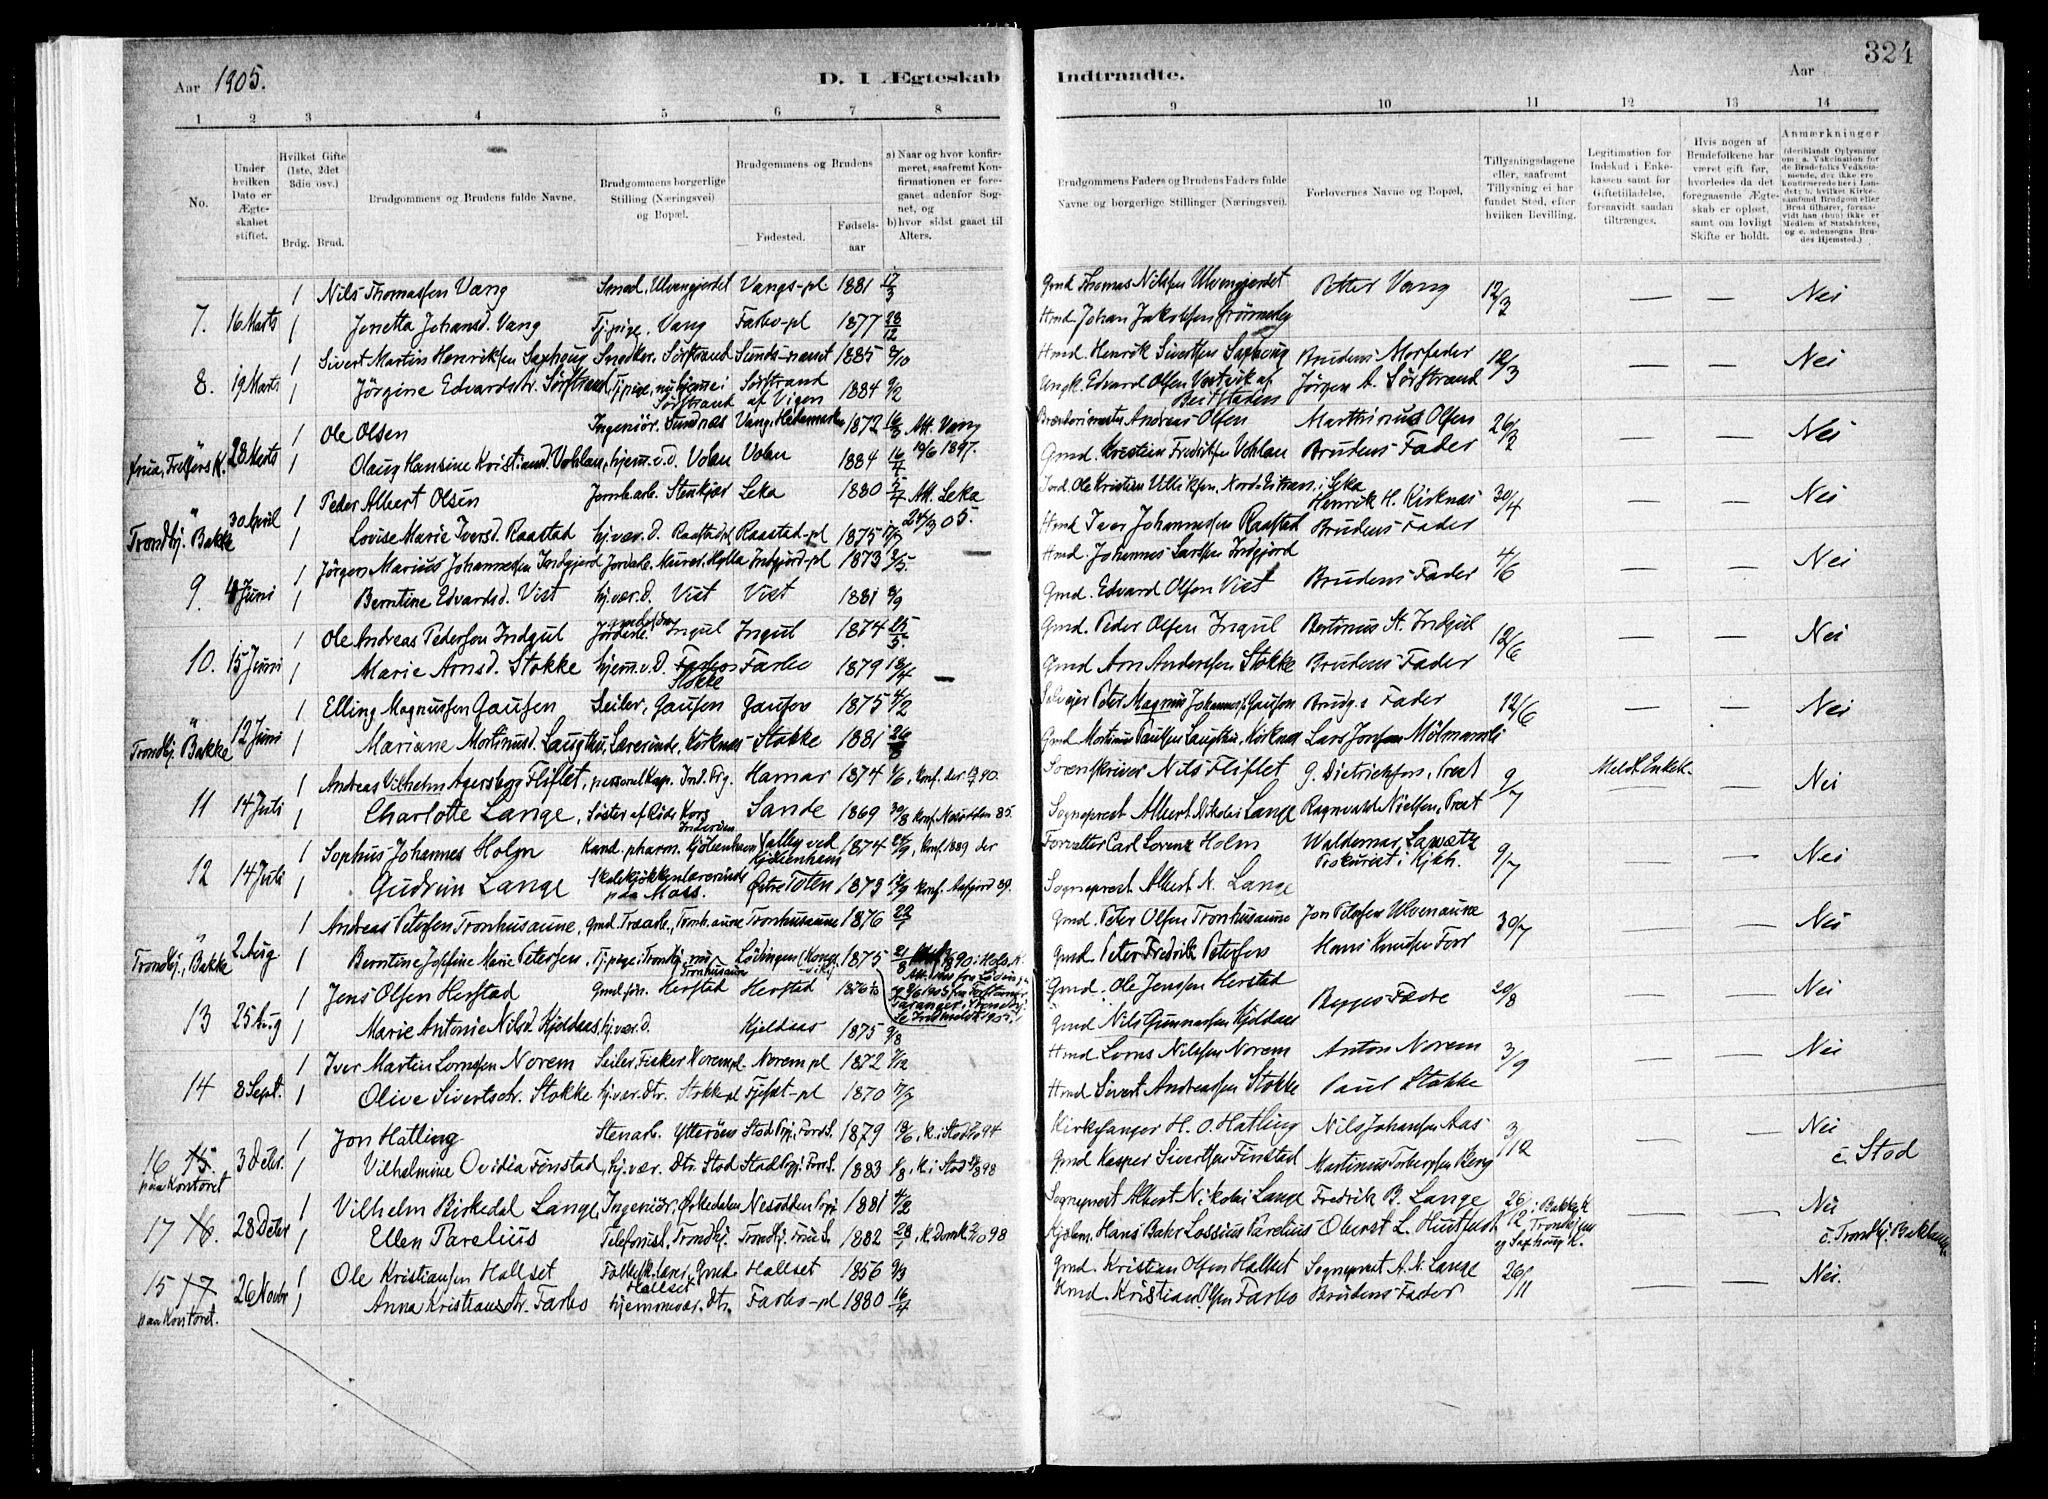 324
Aar 1905.
D. I Ægteskab
Indtraadte.
Aar
1 2 3 4 5 6 7 8
9 10 11 12 13 14
No.
Under hvilken Dato er Ægteskabet stiftet.
Hvilket Gifte (1ste, 2det 3die osv.)
Brdg. Brud.
Brudgommens og Brudens fulde Navne.
Brudgommens borgerlige Stilling (Næringsvei) og Bopæl.
Brudgommens og Brudens
Fødested.
Fødsels-aar
a) Naar og hvor konfirmeret, saafremt Konfirmationen er foregaaet udenfor Sognet, og
b) hvor sidst gaaet til Alters.
Brudgommens Faders og Brudens Faders fulde Navne og borgerlige Stillinger (Næringsvei).
Forlovernes Navne og Bopæl.
Tillysningsdagene eller, saafremt Tillysning ei har fundet Sted, efter hvilken Bevilling.
Legitimation for Indskud i Enkekassen samt for Giftetilladelse, forsaavidt saadan tiltrænges.
Hvis nogen af Brudefolkene har været gift før, hvorledes da det foregaaende Ægteskab er opløst, samt om lovligt Skifte er holdt.
Anmærkninger (deriblandt Oplysning om: a. Vakcination for de Brudefolks Vedkommende, der ikke ere konfirmerede her i Landet; b. hvilket Kirkesamfund Brudgom eller Brud tilhører, forsaavidt han (hun) ikke er Medlem af Statskirken, og c. udensogns Brudes Hjemsted.)
1 Nils Thomassen Vang Smed, Ulvengjerdet Vangs-pl 1881 17/3 Gmd Thomas Nilssen Ulvengjerdet Petter Vang 12/3 — — Nei
7. 16 Marts 1 Jonetta Johansd. Vang Tj.pige, Vang Farbo-pl 1877 23/12 Hmd. Johan Jakobsen
1 Sivert Martin Henriksen Saxhaug Snedker, Sørstrand Sunds- 1885 8/10 Hmd. Henrik Sivertsen Saxhaug Brudens Morfader 12/3 — — Nei
8. 19 Marts 1 Jørgine Edvardsdtr. Sørstrand Tj.pige, nu hjemme i Sørstrand Sørstrand af Vigen 1884 9/2 Ungk. Edvard Olsen Vestvik af Beitstaden Jørgen A. Sørstrand
1 Ole Olsen Ingeniør, Sundnæs Vang, Hedemarken 1872 16/3 Att. Vang 19/6 1897. Andreas Olsen Marthinus Olsen 26/3 — — Nei
28 Marts 1 Olaug Hansine Kristiansd. Vohlan, hjem. v. D. Volan Volan 1884 16/4 Gmd. Kristian Fredriksen Vohlan Brudens Fader
1 Peder Albert Olsen Jernb.arb. Stenkjær Leka 1880 5/4 Att. Leka 24/3 05. Ole Kristian i Leka Henrik H. Kirknæs 30/4 — — Nei
Trondhj. Bakke 30 April 1 Lovise Marie Iversd. Raastad hj.vær. D. Raastad pl Raastad-pl 1875 Hmd Iver Johannessen Raastad Brudens Fader
1 Jørgen Marius Johannessen Indgjerd Indgjerd-pl 1873 Hmd. Johannes Larssen Indgjerd Brudens Fader 4/6 — — Nei
9. 4 Juni 1 Berntine Edvardsd. Vist hj.vær. D. Vist Vist 1881 8/9 Gmd. Edvard Olsen Vist
1 Ole Andreas Pedersen Indgul Ingul Ingul 1874 25/5 Gmd. Peder Olsen Ingul Bertinus St. Indgul 12/6 — — Nei
10. 15 Juni 1 Marie Arnsd. Stokke hjem.v.D. Stokke Farbo 1879 13/4 Gmd Arn Anderssen Stokke Brudens Fader
1 Elling Magnussen Gausen Seiler, Gausen Gausen 1875 4/2 Peter Magnus Johannes. Gausen Brudg.s Fader 12/6 — — Nei
Trondhj. Bakke 12 Juni 1 Mariane Mortinusd. Laugthu, Lærerinde, Kirknæs Stokke 1881 26/8 Gmd Mortinus Paulsen Laugthu, Kirknæs Lars Jonssen
1 Andreas Vilhelm Agersborg Fliflet, personel Kap. Hamar 1874 1/6, Konf. der 90. Sorenskriver Nils Fliflet G. Dietrichson, Præst 9/7 Meldt Enkek. — Nei
11 14 Juli 1 Charlotte Lange, Søster af Kors Inderøen Sande 1869 30/8 Konf. Nesodden 85. Sogneprest Albert Nikolai Lange Ragnvald Nielsen, Præst
1 Sophus Johannes Holm Kand. pharm. Kjøbenhavn Valby ved Kjøbenhavn 1874 24/9, Konf. 1889 der Forvalter Carl Lorenz Holm Waldemar Prokurist i Kjbh. 9/7 — — Nei
12 14 Juli 1 Gudrun Lange Skolekjøkkenlærerinde paa Moss. Østre Toten 1873 12/9 Konf. Aafjord 89. Sogneprest Albert N. Lange
1 Andreas Petersen Tronhusaune, Gmd. Træarb., Tronh.aune Tronhusaune 1876 Gmd. Peter Olsen Tronhusaune Jon Petersen Ulvenaune 30/7 — — Nei
Trondhj., Bakke 2 Aug 1 Berntine Josefine Marie Petersen, Tj.pige, Trondhj. nu Tronhusaune Lødingen 1875 21/8 Gmd. Peter Fredrik Petersen Hans Knudsen Forr
1 Jens Olsen Herstad Gmd.søn. Herstad Herstad 1876 Gmd. Ole Jenssen Herstad Begges Fædre 20/8 — — Nei
13 25 Aug 1 Marie Antonie Nilsd. Kjeldaas, hj.vær. D. Kjeldaas 1875 9/8 Gmd Nils Gunnarssen Kjeldaas
1 Iver Martin Lornssen Norem Seiler, Fisker Norem pl. Norem pl 1872 7/12 Hmd Lorns Nilssen Norem Anton Norem 3/9 — — Nei
14 8 Sept. 1 Olive Sivertsdtr. Stokke hj.vær. Dtr. Stokke pl 1870 Hmd Sivert Andreassen Stokke Paul Stokke
1 Jon Hatling Stenarb. Ytterøen Stod 1879 13/6, K. i Stod 94 Kirkesanger H. O. Hatling Nils Johansen Aas 3/12 — — Nei
16 15. paa Kontoret 3 Decbr. 1 Vilhelmine Ovidia Finstad hj.vær. Dtr. Stod Stod 1883 1/8, K. i Stod 98 Gmd Kasper Sivertsen Finstad Martinus Torbergsen Berg c. Stod
1 Vilhelm Birkedal Lange, Ingeniør, Orkedalen Nesodden 1881 4/2 Sogneprest Albert Nikolai Lange Fredrik B. Lange 26/12 i Bakke K. Trondhjem og Saxhaug K. — — Nei
17 16. 28 Decbr 1 Ellen Parelius Telefonist, Trondhj. Trondhj. Frue S. 1882 28/7, K. Domk. 98 Kjøbm. Hans Bahr Lossius Parelius Oberst L. c. Trondhj. Bakke
1 Ole Kristiansen Hallset Folkesk.lærer, Gmd. Hallset Hallset 1856 9/3 Gmd. Kristian Olsen Hallset Sogneprest A. N. Lange 26/11 — — Nei.
15 17 paa Kontoret. 26 Novbr 1 Anna Kristiansdtr. Farbo hjemmevær. Dtr. Farbo-pl 1880 16/4 Hmd. Kristian Olsen Farbo Brudens Fader